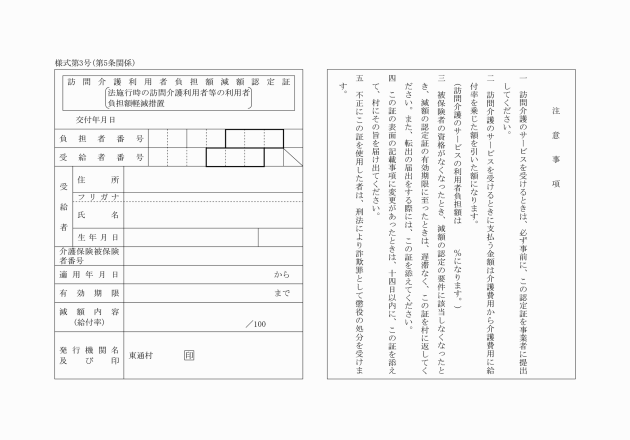 様式第3号(第5条関係)
訪問介護利用者負担額減額認定証
法施行時の訪問介護利用者等の利用者
負担額軽減措置
交付年月日
負担者番号
受給者番号
受給者
住所
フリガナ
氏名
生年月日
介護保険被保険
者番号
適用年月日
から
有効期限
まで
減額内容
(給付率)
/100
発行機関名
及び印
東通村
印
注意事項
一 訪問介護のサービスを受けるときは、必ず事前に、この認定証を事業者に提出
してください。
二 訪問介護のサービスを受けるときに支払う金額は介護費用から介護費用に給
付率を乗じた額を引いた額になります。
(訪問介護のサービスの利用者負担額は %になります。)
三 被保険者の資格がなくなったとき、減額の認定の要件に該当しなくなったと
き、減額の認定証の有効期限に至ったときは、遅滞なく、この証を村に返してく
ださい。また、転出の届出をする際には、この証を添えてください。
四 この証の表面の記載事項に変更があったときは、十四日以内に、この証を添え
て、村にその旨を届け出てください。
五 不正にこの証を使用した者は、刑法により詐欺罪として懲役の処分を受けま
す。